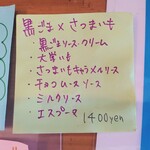 黒ごま×さつまいも
・黒ごまソース・クリーム
・大学いも
・さつまいもキャラメルソース
・チョコムースソース
・ミルクソース
・エスプーマ
1400yen